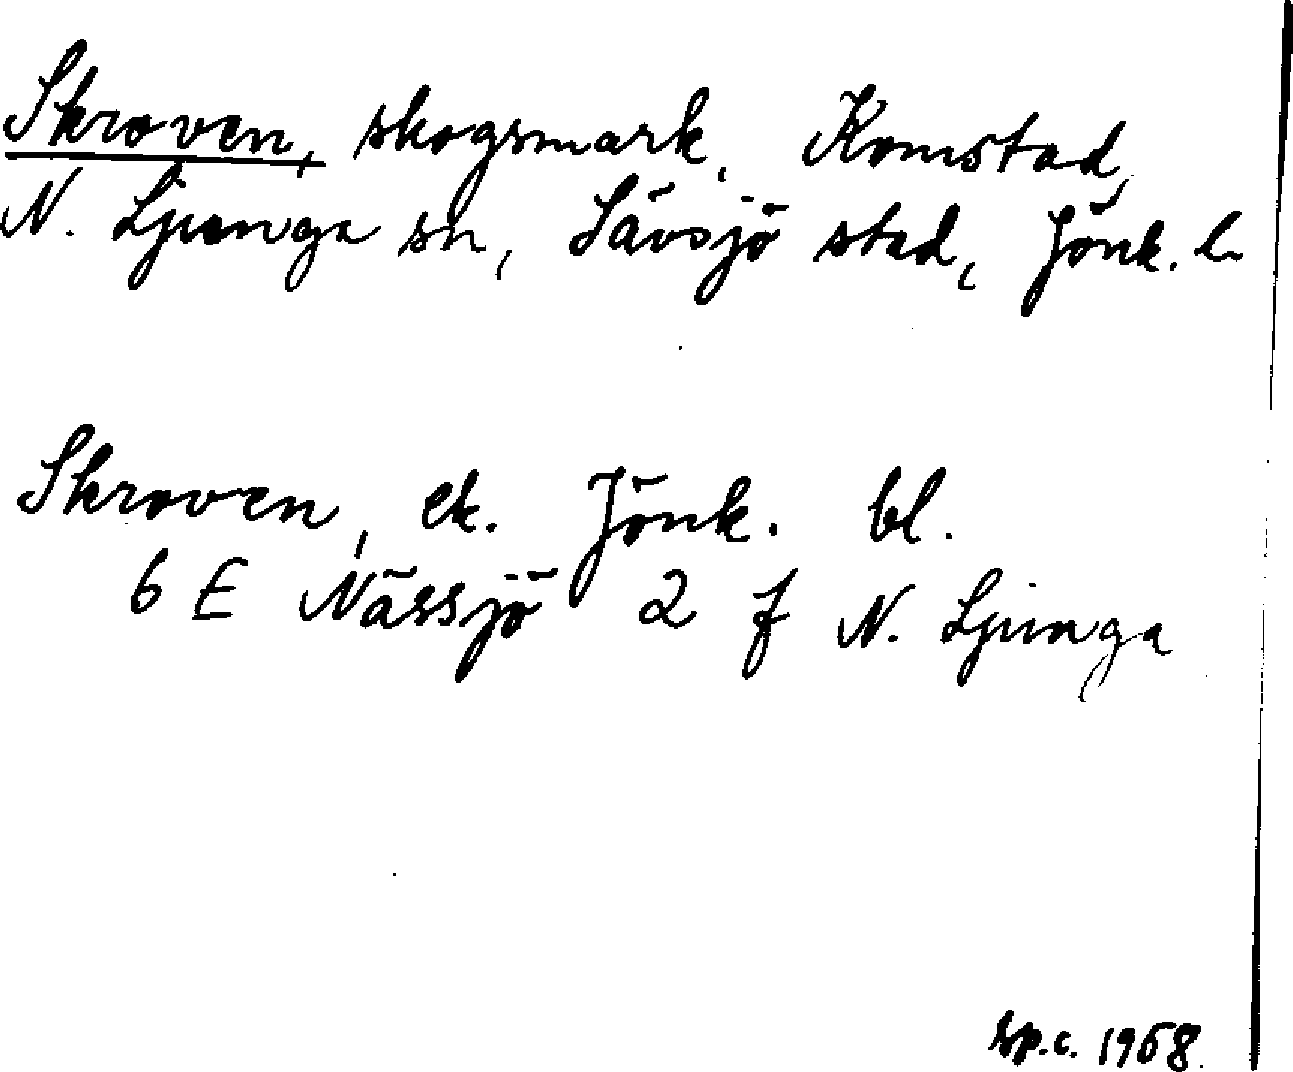 Skroven, skogsmark, Komstad,
N. Ljunga sn, Sävsjö stad, Jönk. l.
Skroven, ek. Jönk. bl.
6 E Nässjö 2 f N. Ljunga
sp.c. 1968.